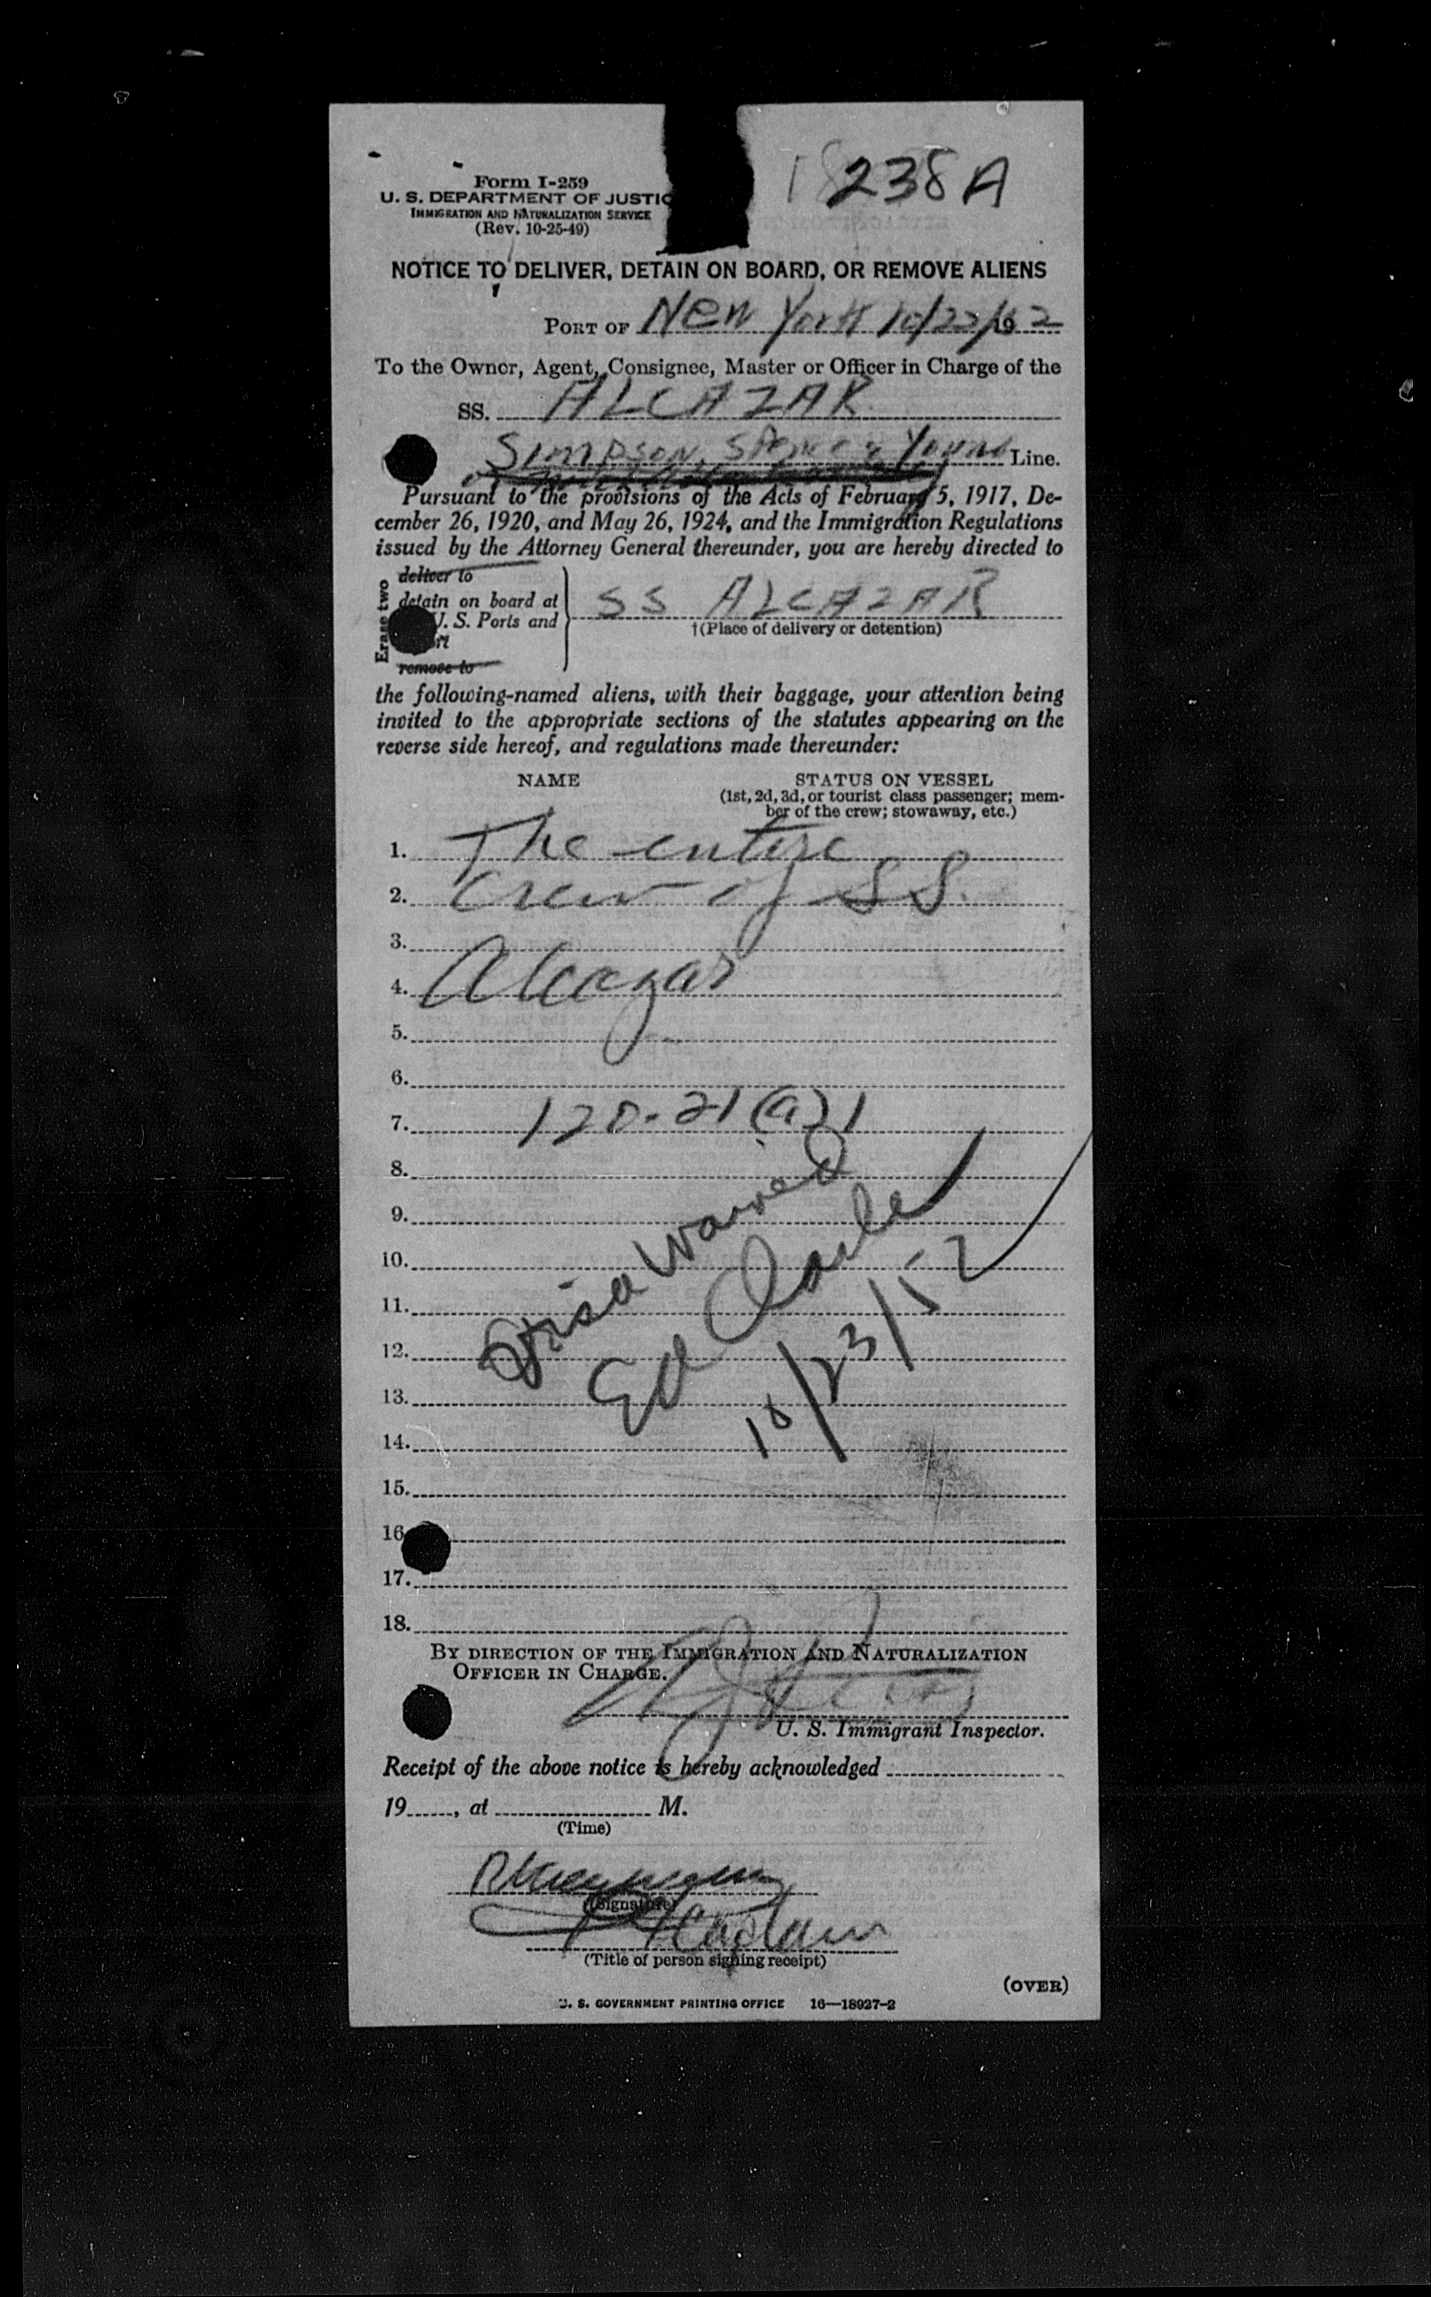 238 A
Form I-259
U. S. DEPARTMENT OF JUSTIC
IMMIGRATION AND NATURALIZATION SERVICE
(Rev. 10-25-49)
NOTICE TO DELIVER, DETAIN ON BOARD, OR REMOVE ALIENS
PORT OF New York 10/22/1952
To the Owner, Agent, Consignee, Master or Officer in Charge of the
SS. ALCAZAR
SIMPSON, SPENCE & YOUNG Line.
Pursuant to the provisions of the Acts of February 5, 1917, De-
cember 26, 1920, and May 26, 1924, and the Immigration Regulations
issued by the Attorney General thereunder, you are hereby directed to
Erase two
deliver to
detain on board at
U. S. Ports and
remove to
SS ALCAZAR
†(Place of delivery or detention)
the following-named aliens, with their baggage, your attention being
invited to the appropriate sections of the statutes appearing on the
reverse side hereof, and regulations made thereunder:
NAME STATUS ON VESSEL
(1st, 2d, 3d, or tourist class passenger; mem-
ber of the crew; stowaway, etc.)
1. The entire
2. Crew of SS.
3.
4. Alcazar
5.
6.
7. 120.21(a)1
8.
9.
10.
11.
12.
13.
14.
15.
16
17.
18.
Visa Waived
Ed
10/23/52
BY DIRECTION OF THE IMMIGRATION AND NATURALIZATION
OFFICER IN CHARGE.
U. S. Immigrant Inspector.
Receipt of the above notice is hereby acknowledged
19......, at .................... M.
(Time)
(Signature)
Captain
(Title of person signing receipt)
(OVER)
U. S. GOVERNMENT PRINTING OFFICE 16—18927-2